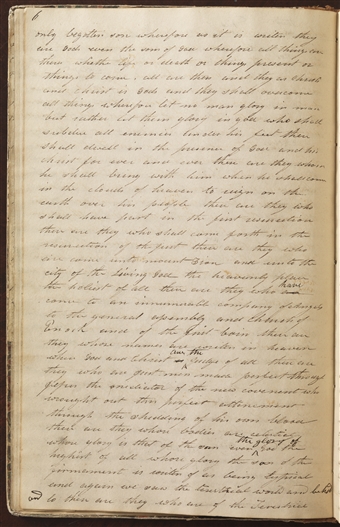 6
only begotten son wherefore as it is writen they
are Gods even the son of God wherefore all things are
theirs whether life or death or things present or
things to come all are theirs and they are christs
and christ is Gods and they shall overcome
all things wherefore let no man glory in man
but rather let them glory in god who shall
subdue all enemies under his feet these
shall dwell in the presence of God and his
christ for ever and ever these are they whom
he shall bring with him when he shall come
in the clouds of heaven to reign on the
earth over his people these are they who
shall have part in the first resurrection
these are they who shall come forth in the
resurrection of the just these are they who
are come unto mount Zion and unto the
city of the living God the heavenly place
the holiest of all these are they who have
come to an innumerable company of angels
to the general assembly and church of
Enoch and of the first born these are
they whose names are writen in heaven
where God and Christ are the Judge of all these are
they who are just men made perfect through
the mediator of the new covenant who
wrought out this perfect attonement
through the shedding of his own blood
these are they whose bodies are celestial
whose glory is that of the sun even the glory of God the
highest of all whose glory the sun of the
firmament is writen of as being typical
and again we saw the terestrial world and behold
and lo these are they who are of the terestrial